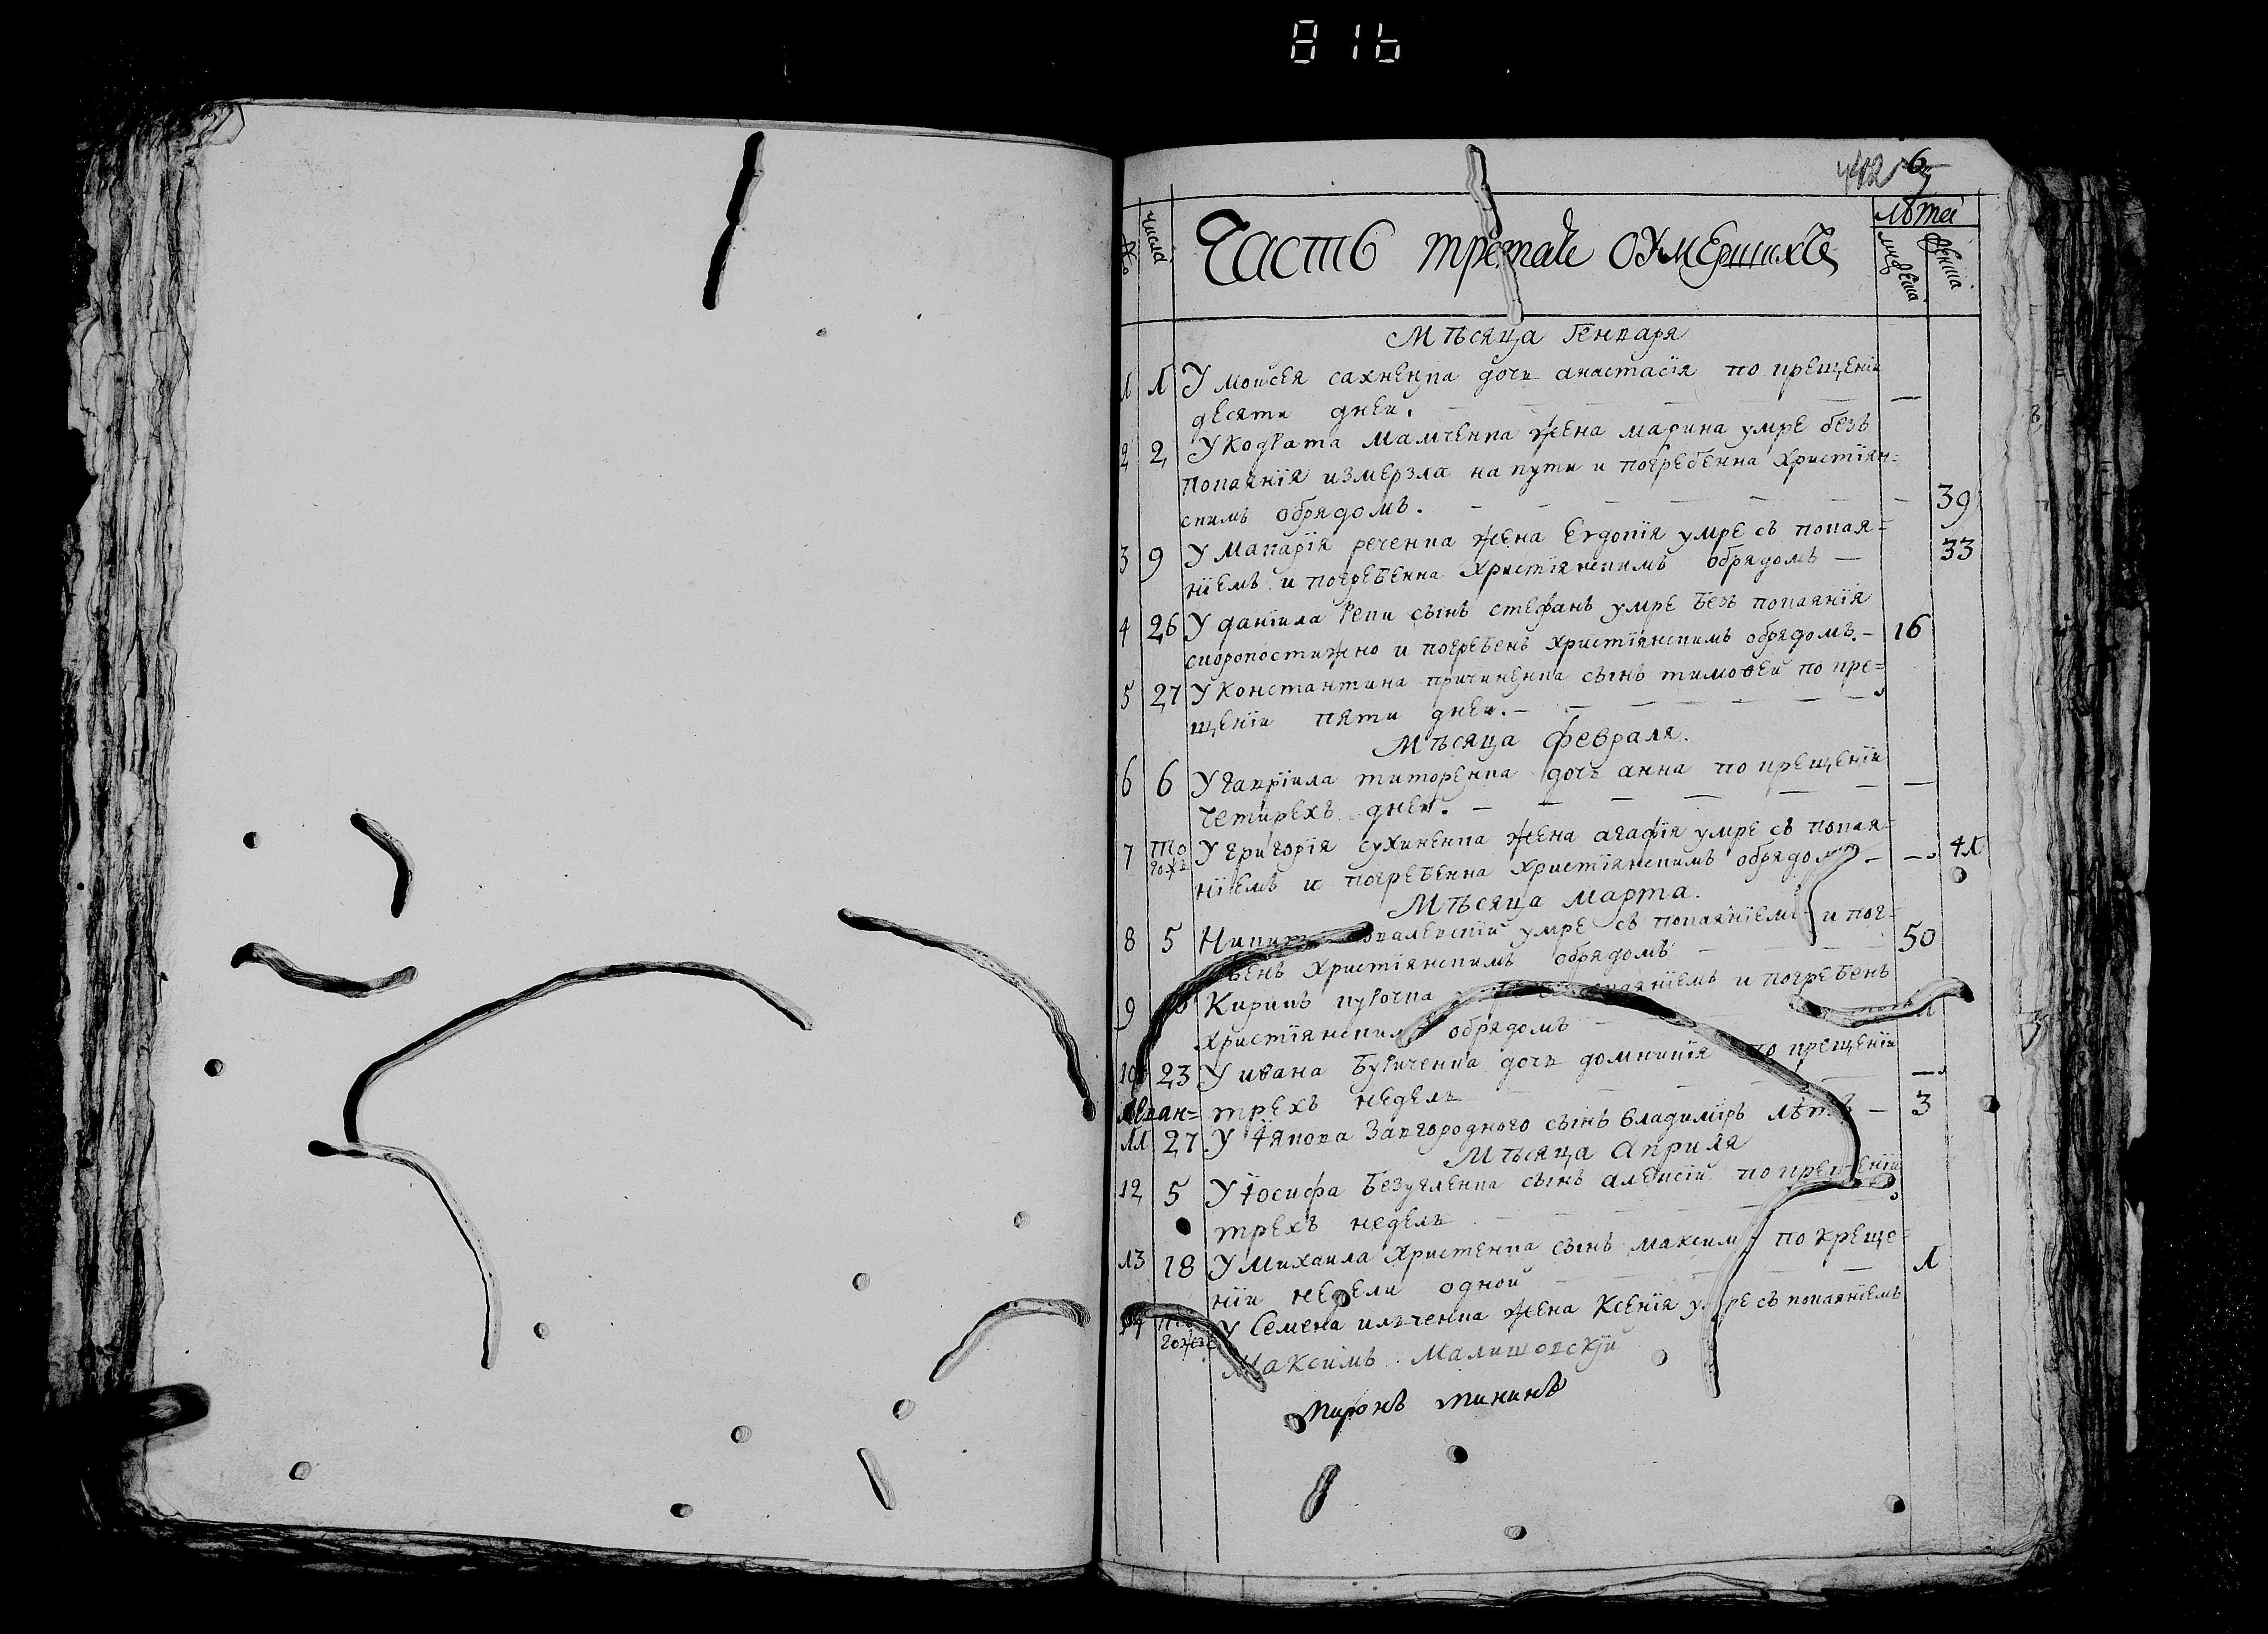 816
442 67
№ числа Часть третая оумершихъ лѣта
мужеска женска
Мѣсяца Генваря
1 1 У Моисея сахненка дочь анастасія по крещеніи
десяти дней. —
2 2 У Кодрата Мамченка жена марина умре безъ
покаянія измерзла на пути и погребенна Христіян=
скимъ обрядомъ. — 39
3 9 У Макарія реченка жена Евдокія умре съ покая=
ніемъ и погребенна Христіянскимъ обрядомъ — 33
4 26 У даніила Репи сынъ стефанъ умре безъ покаянія
скоропостижно и погребенъ Христіянскимъ обрядомъ. — 16
5 27 У Константина причиненка сынъ тимоѳей по кре=
щеніи пяти дней. —
Мѣсяца февраля.
6 6 У гавріила титоренка дочь анна по крещеніи
Четирехъ дней. —
7 то У григорія сухиненка жена агафія умре съ покая=
гожъ ніемъ и погребенна Христіянскимъ обрядомъ — 41
Мѣсяца марта.
8 5 умре съ покаяніемъ и пог=
бенъ Христіянскимъ обрядомъ — 50
9 Кирикъ покаяніемъ и погребенъ
Христіянскимъ обрядомъ —
10 23 У ивана Буриченка дочь домникія по крещеніи
трехъ недель —
11 27 У Іякова Завгородного сынъ владимиръ лѣтъ — 3
Мѣсяца Априля
12 5 У Іосифа Безугленка сынъ алексій по крещеніи
трехъ недель —
13 18 У Михаила Христенка сынъ максимъ по креще=
ніи недели одной — 1
14 то У Семена ильченка жена Ксенія умре съ покаяніемъ
гожъ
Максимъ Малишовскій
Миронъ Мининъ